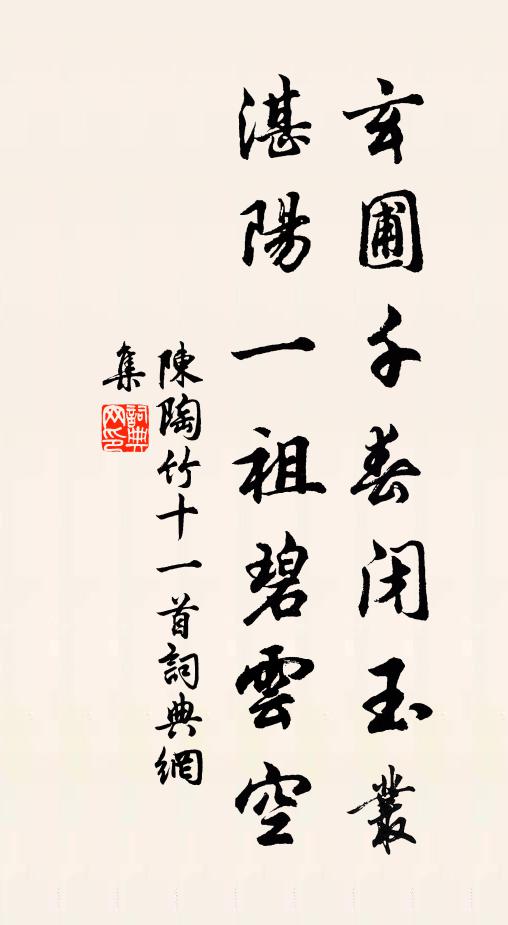 玄圃千春闭玉叢
湛陽一祖碧雲空
陳陶竹十一首詞典網
集
詞典
网印